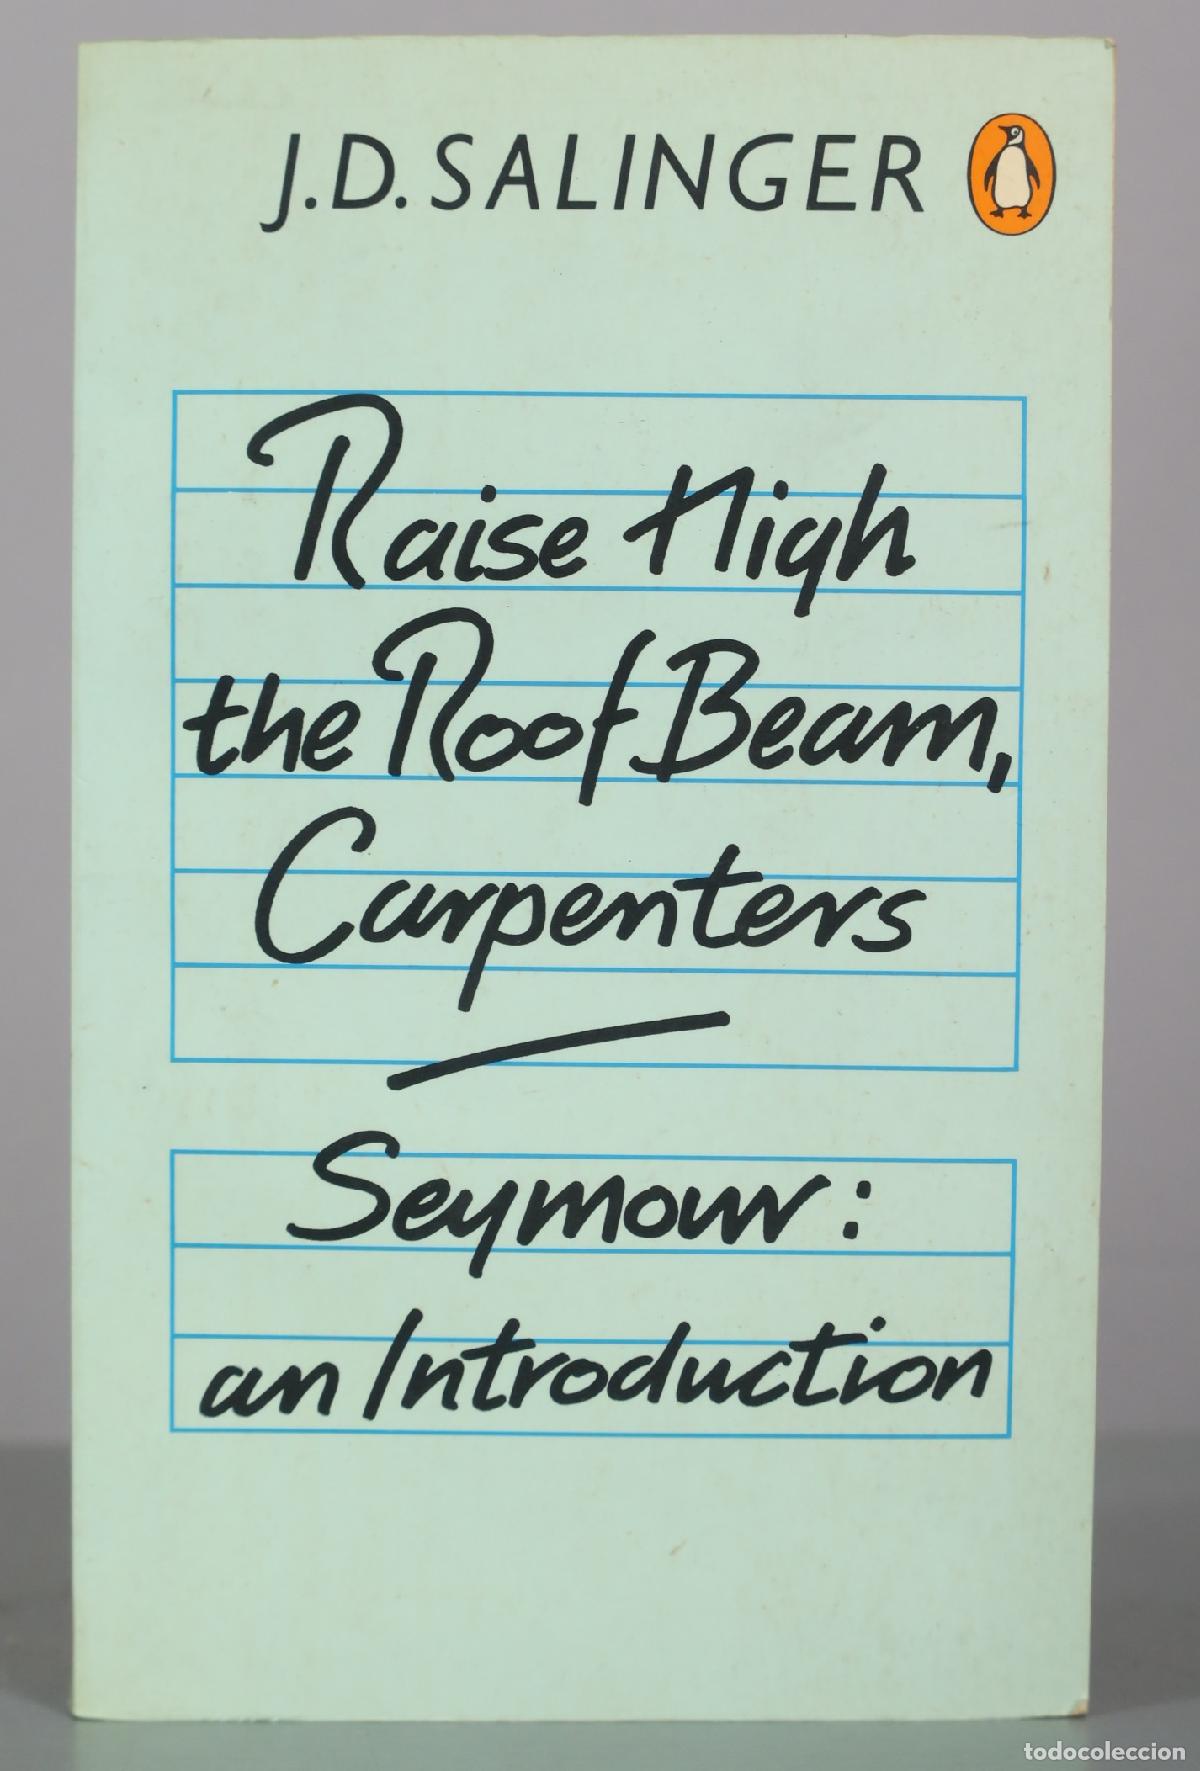 J.D. SALINGER
Raise High
the Roof Beam,
Carpenters
Seymour:
an Introduction
todocoleccion